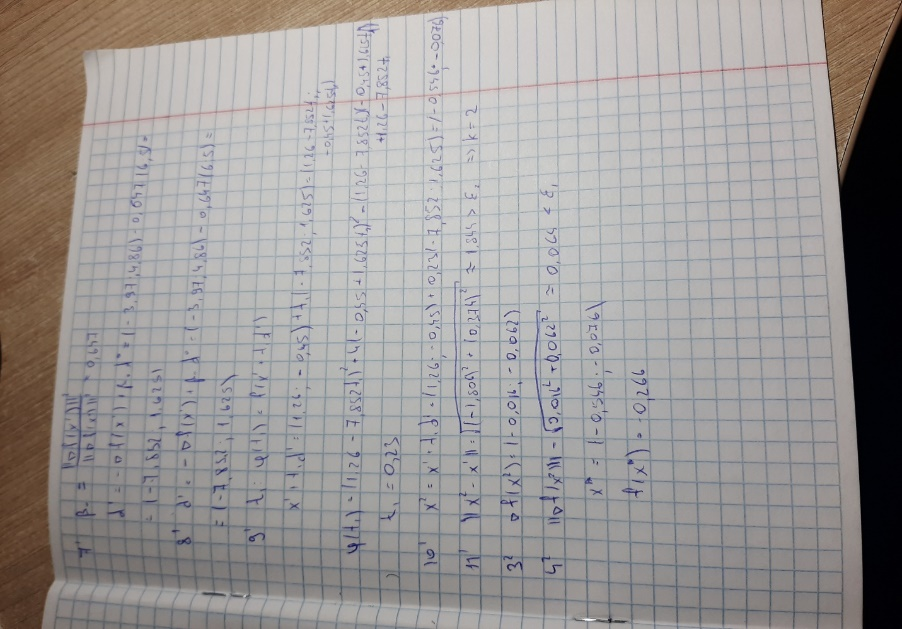 7¹ β₀ = ||∇f(x¹)||² / ||∇f(x⁰)||² = 0,647
d¹ = -∇f(x¹) + β₀ d⁰ = (-3,97; 4,86) - 0,647(6,5) =
= (-7,852, 1,625)
8¹ d¹ = -∇f(x¹) + β₀ d⁰ = (-3,97; 4,86) - 0,647(6,5) =
= (-7,852; 1,625)
9¹ t₁: φ(t₁) = f(x¹ + t₁d¹)
x¹ + t₁d¹ = (1,26; -0,45) + t₁(-7,852; 1,625) = (1,26 - 7,852t₁;
-0,45+1,625t₁)
φ(t₁) = (1,26 - 7,852t₁)² + 4(-0,45 + 1,625t₁)² - (1,26 - 7,852t₁)(-0,45+1,625t₁)
+1,26 - 7,852t₁
t₁ = 0,23
10¹ x² = x¹ + t₁d¹ = (1,26; -0,45) + 0,23(-7,852; 1,625) = (-0,546; -0,076)
11¹ ||x² - x¹|| = √(-1,806)² + (0,374)² = 1,844 > ε₂ ⇒ k = 2
3² ∇f(x²) = (-0,016; -0,062)
4² ||∇f(x²)|| = √0,016² + 0,062² = 0,064 < ε₁
x* = (-0,546; -0,076)
f(x*) = -0,266